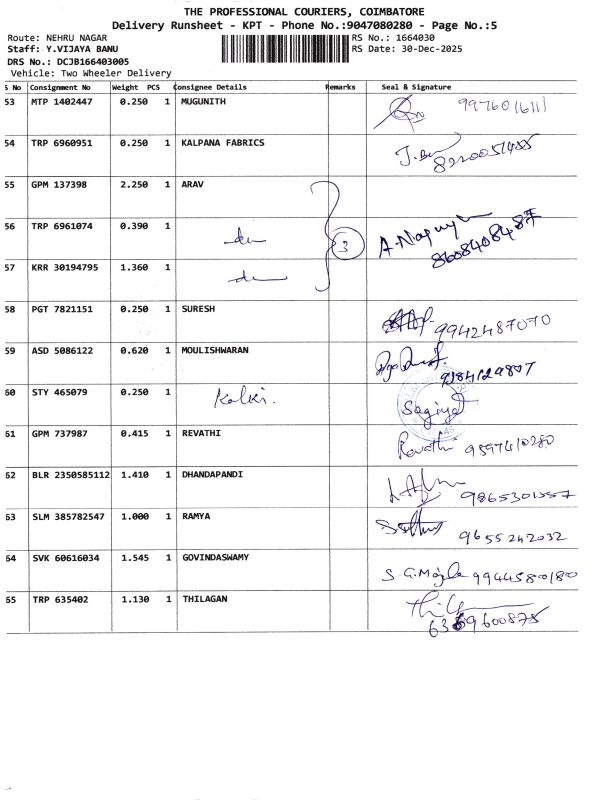 THE PROFESSIONAL COURIERS, COIMBATORE
Delivery Runsheet - KPT - Phone No.:9047080280 - Page No.:5
Route: NEHRU NAGAR RS No.: 1664030
Staff: Y.VIJAYA BANU RS Date: 30-Dec-2025
DRS No.: DCJB166403005
Vehicle: Two Wheeler Delivery
S No Consignment No Weight PCS Consignee Details Remarks Seal & Signature
53 MTP 1402447 0.250 1 MUGUNITH
54 TRP 6960951 0.250 1 KALPANA FABRICS
55 GPM 137398 2.250 1 ARAV
56 TRP 6961074 0.390 1 3 8608408487
57 KRR 30194795 1.360 1
58 PGT 7821151 0.250 1 SURESH 9942487070
59 ASD 5086122 0.620 1 MOULISHWARAN
60 STY 465079 0.250 1 Kalki.
61 GPM 737987 0.415 1 REVATHI Revathi 9597410280
62 BLR 2350585112 1.410 1 DHANDAPANDI 9865301557
63 SLM 385782547 1.000 1 RAMYA 9655242032
64 SVK 60616034 1.545 1 GOVINDASWAMY 9944580180
65 TRP 635402 1.130 1 THILAGAN